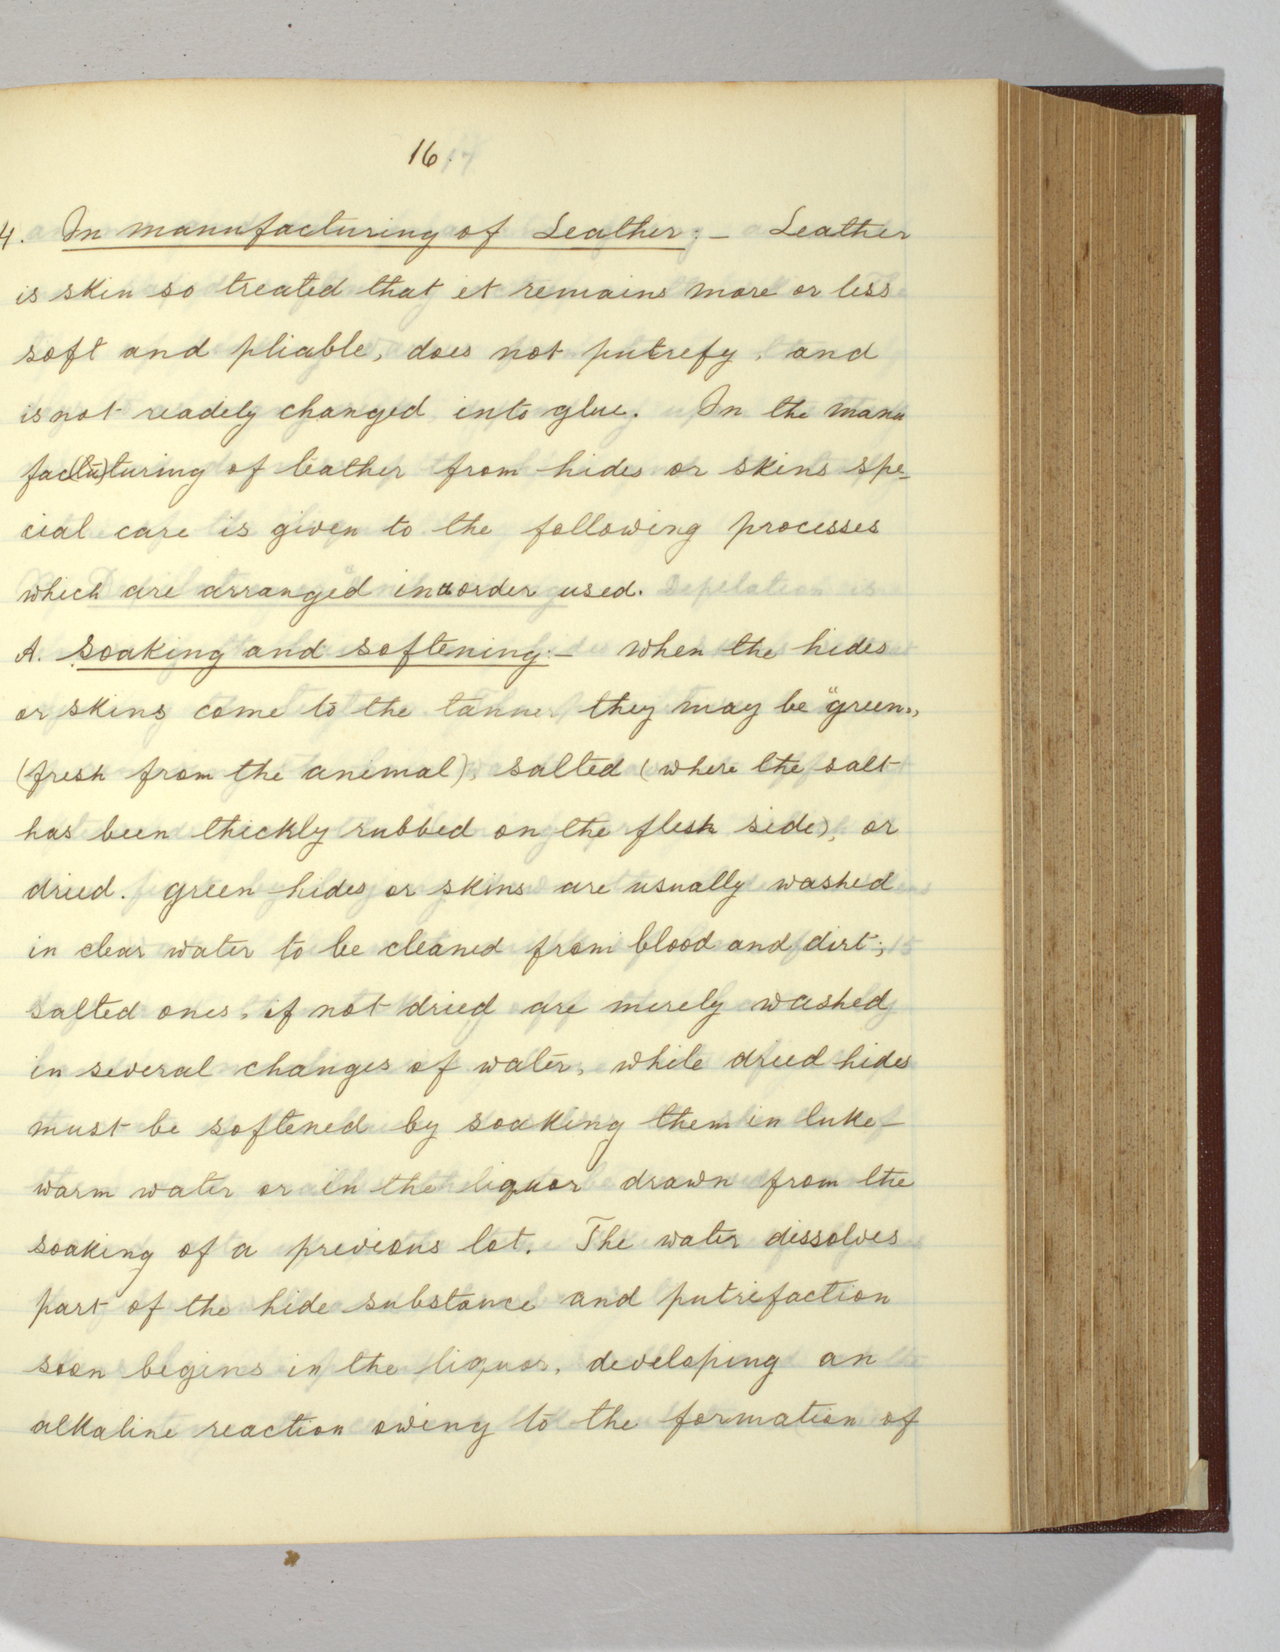 16.
4. In manufacturing of Leather:- Leather
is skin so treated that it remains more or less
soft and pliable, does not putrefy, and
is not readely changed into glue. In the manu
fac(tu)turing of leather from hides or skins spe-
cial care is given to the following processes
which are arranged in order used.
A. Soaking and softening:- When the hides
or skins come to the tanner they may be "green",
(fresh from the animal), salted (where the salt
has been thickly rubbed on the flesh side), or
dried. green hides or skins are usually washed
in clear water to be cleaned from blood and dirt;
salted ones, if not dried are merely washed
in several changes of water, while dried hides
must be softened by soaking them in luke-
warm water or in the liquor drawn from the
soaking of a previous lot. The water dissolves
part of the hide substance and putrifaction
soon begins in the liquor, developing an
alkaline reaction owing to the formation of